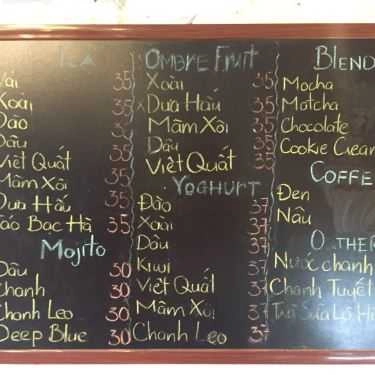 Vải 35
Xoài 35
Đào 35
Dâu 35
Việt Quất 35
Mâm Xôi 35
Dưa Hấu 35
Táo Bạc Hà 35
Mojito
Dâu 30
Chanh 30
Chanh Leo 30
Deep Blue 30
Ombre Fruit
Xoài 35
Dưa Hấu 35
Mâm Xôi 35
Dâu 35
Việt Quất 35
Yoghurt
Đào 37
Xoài 37
Dâu 37
Kiwi 37
Việt Quất 37
Mâm Xôi 37
Chanh Leo 37
Blend
Mocha
Matcha
Chocolate
Cookie Cream
Coffe
Đen
Nâu
Other
Nước chanh
Chanh Tuyết
Trà Sữa